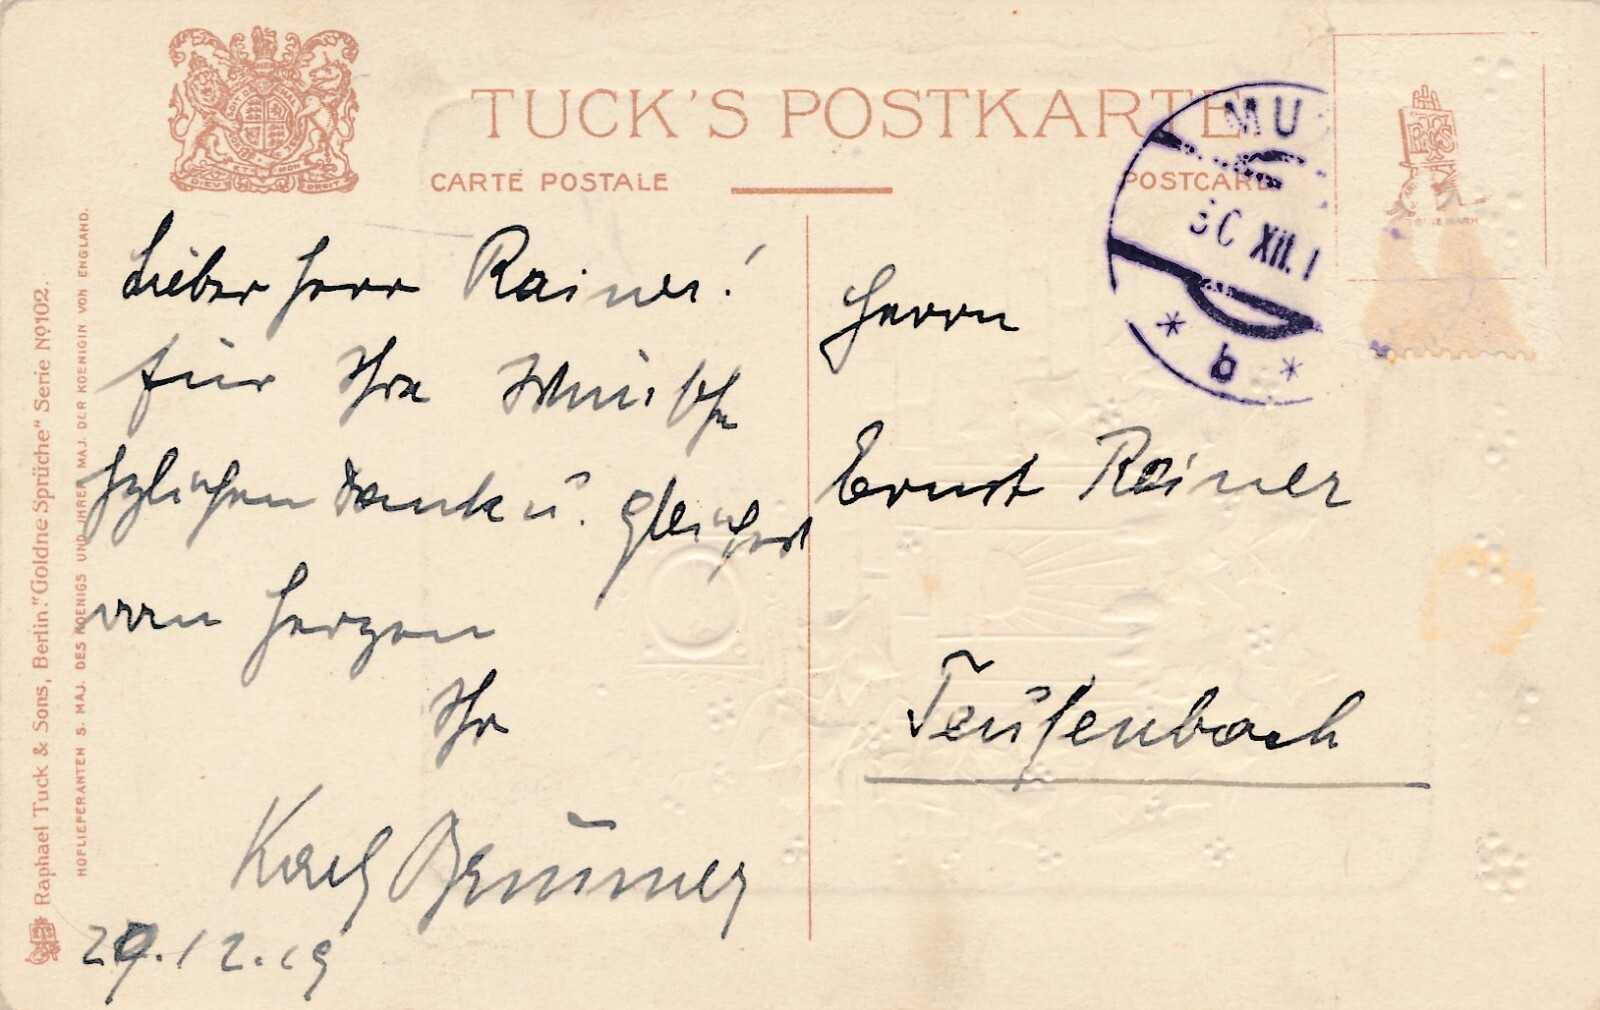 TUCK'S POSTKARTE
CARTE POSTALE
POSTCARD
MU
30 XII. 1
* b *
TRADE MARK
DIEU ET MON DROIT
Raphael Tuck & Sons, Berlin. "Goldne Sprüche" Serie Nº 102.
HOFLIEFERANTEN S. MAJ. DES KOENIGS UND IHRER MAJ. DER KOENIGIN VON ENGLAND.
Lieber Herr Rainer!
für Ihre Wünsche
hzlichen Dank u. gleichfalls
von Herzen
Ihr
Karl Brunner
29.12.19
Herrn
Ernst Rainer
Teufenbach